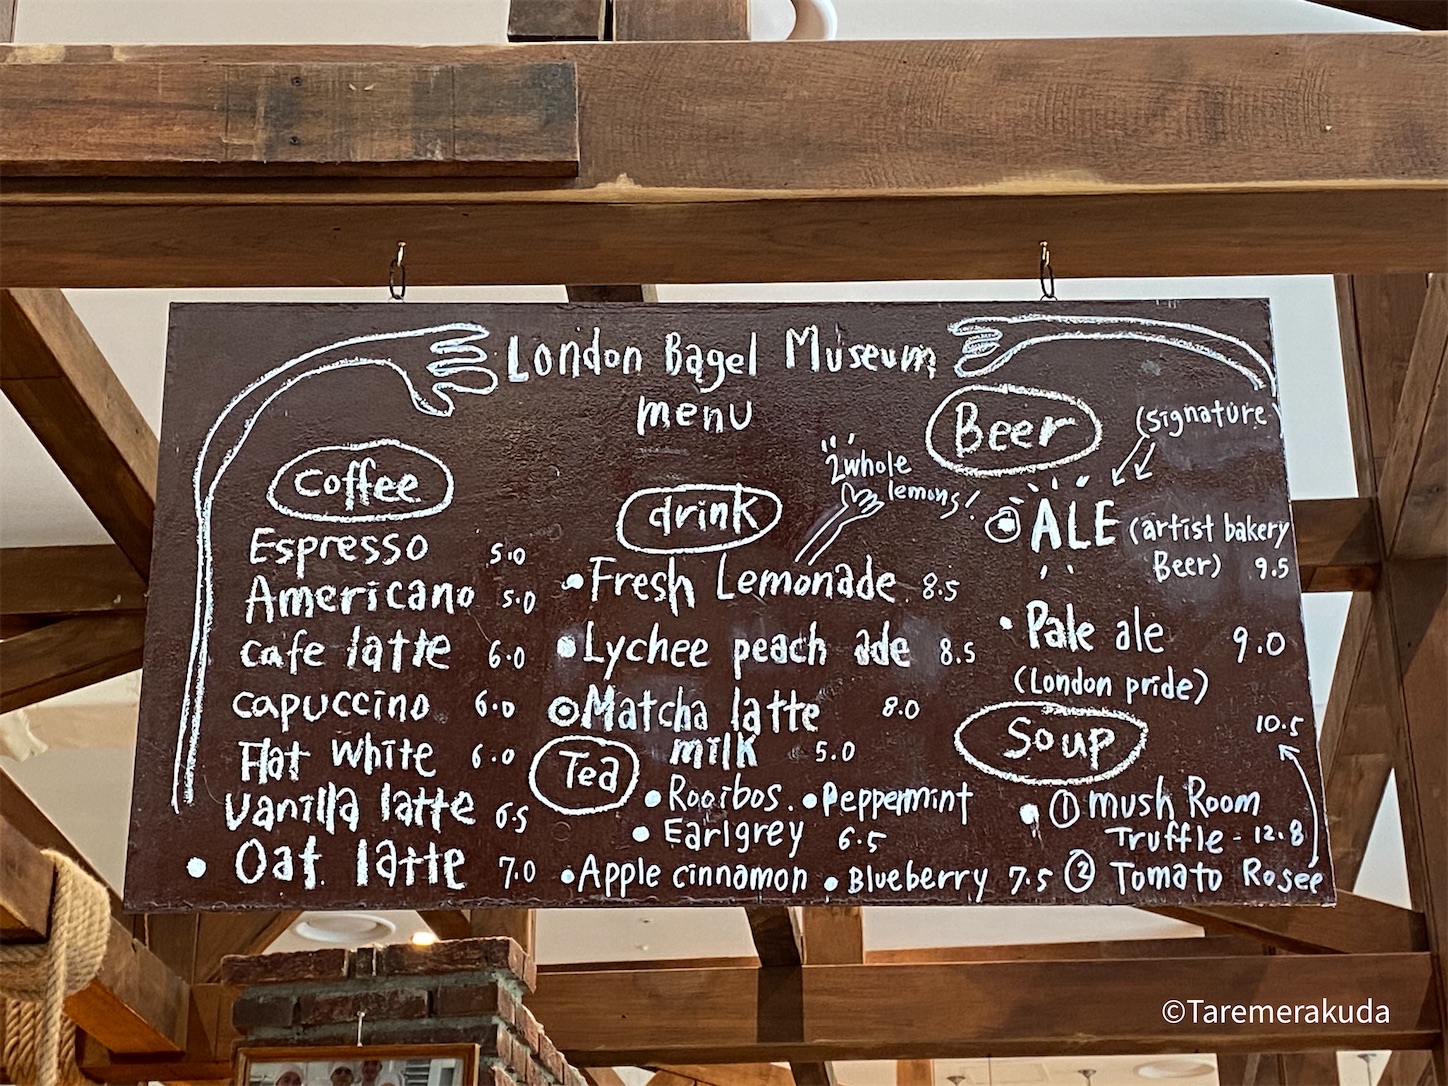 London Bagel Museum
menu
coffee
Espresso 5.0
Americano 5.0
cafe latte 6.0
capuccino 6.0
Flat white 6.0
vanilla latte 6.5
Oat latte 7.0
drink
2 whole
lemons!
Fresh Lemonade 8.5
Lychee peach ade 8.5
Matcha latte 8.0
milk 5.0
Tea
Rooibos. Peppermint
Earlgrey 6.5
Apple cinnamon Blueberry 7.5
Beer
(signature)
ALE (artist bakery
Beer) 9.5
Pale ale 9.0
(London pride)
Soup
10.5
① mush Room
Truffle - 12.8
② Tomato Rosee
©Taremerakuda